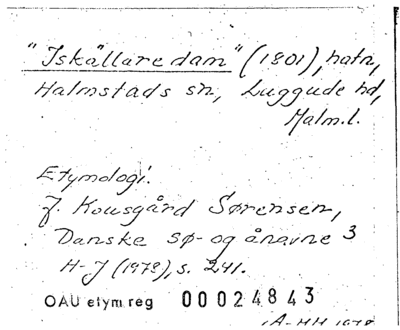 "Iskällare dam" (1801), natn,
Halmstads sn, Luggude hd,
Malm.l.
Etymologi.
J. Kousgård Sørensen,
Danske sø- og ånavne 3
H-J (1978), s. 241.
OAU etym reg 00024843